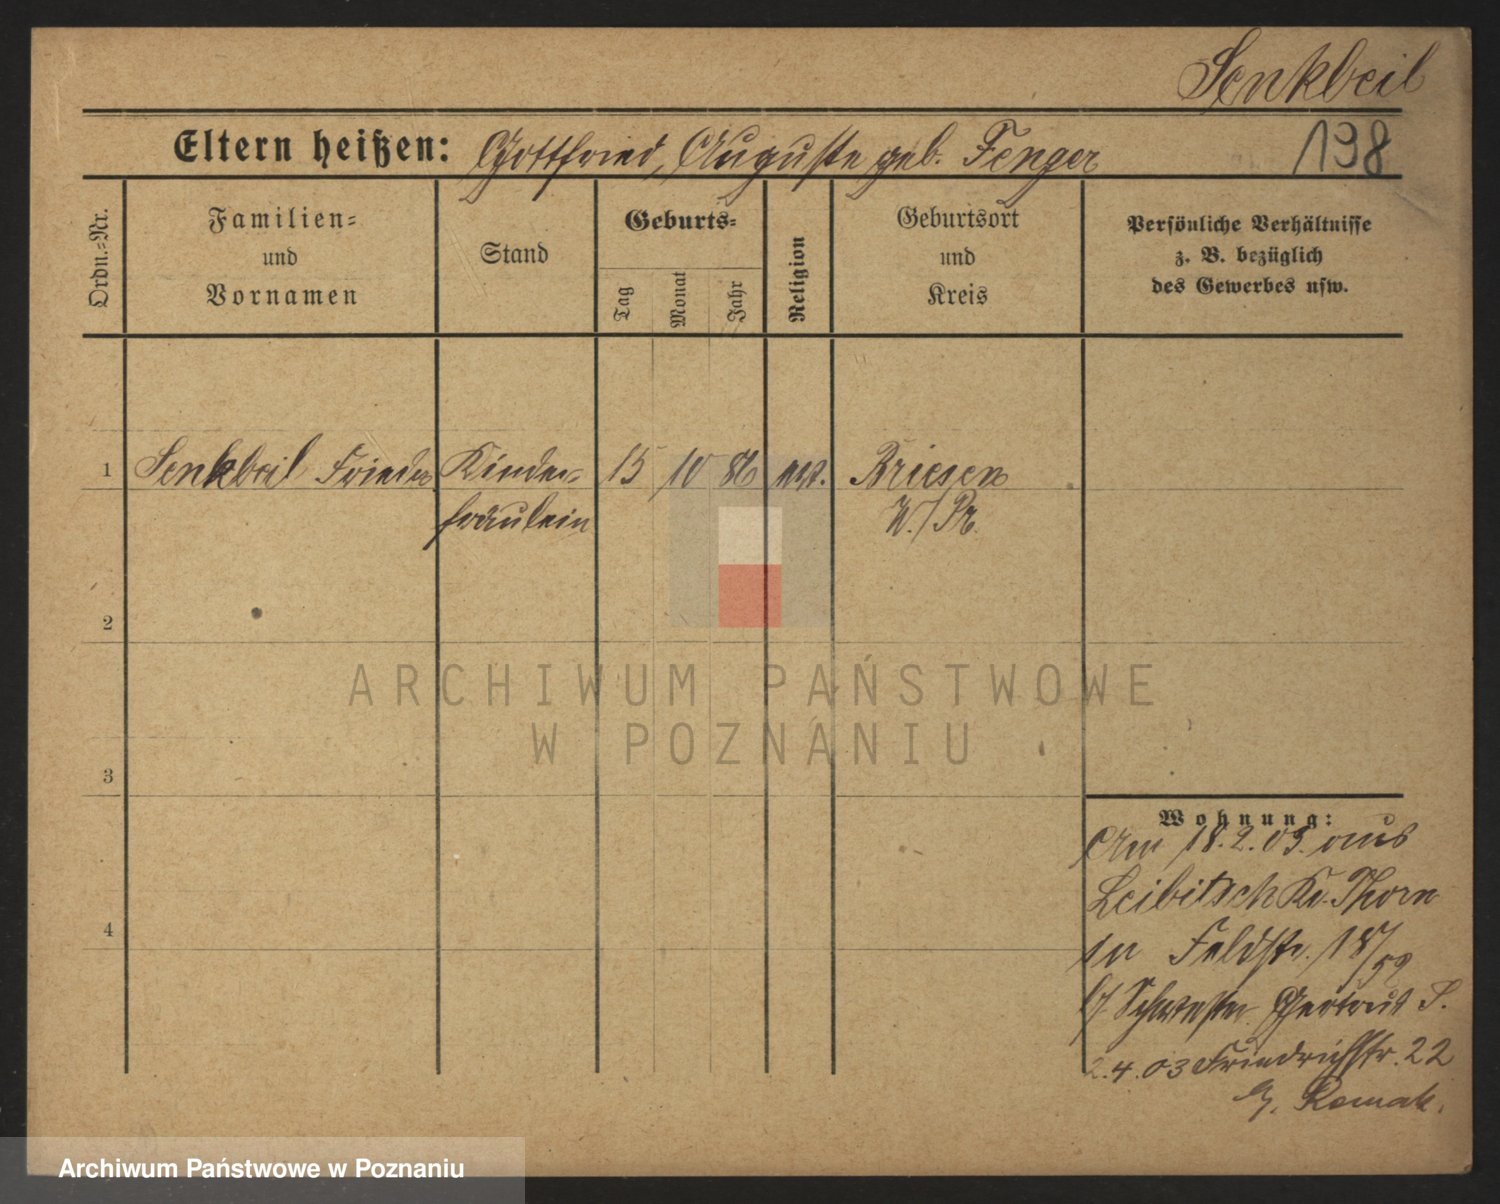 Senkbeil
Eltern heißen: Gottfried, Auguste geb. Fenger
198
Ordn.=Nr.
Familien=
und
Vornamen
Stand
Geburts=
Tag
Monat
Jahr
Religion
Geburtsort
und
Kreis
Persönliche Verhältnisse
z. B. bezüglich
des Gewerbes usw.
1 Senkbeil Frieda Kinder= 15 10 86 Briesen
fräulein W./Pr.
2
3
4
ARCHIWUM PAŃSTWOWE
W POZNANIU
Wohnung:
Am 18.2.03. aus
Leibitsch Kr. Thorn
in Feldstr. 18/
b/ Schwester Gertrud S.
2.4.03 Friedrichstr. 22
b/. Remak.
Archiwum Państwowe w Poznaniu